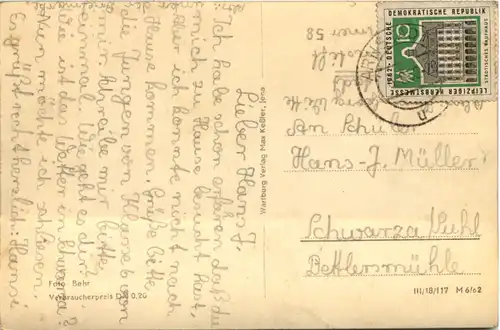 Lieber Hans J.
Ich habe schon erfaren das du
mich zu Hause besucht hast,
aber ich konnte nicht nach
Hause kommen. Grüße bitte
die Jungen von Klasse 6 von
mir. Schreibe mir bitte
einmal. Wie geht es dir?
Wie ist das Wetter in Schwarza?
Nun möchte ich schliesen.
Es grüßt recht herzlich: Hansi
Foto Behr
Verbraucherpreis DM 0,20
Wartburg Verlag Max Keßler, Jena
DEUTSCHE DEMOKRATISCHE REPUBLIK
10
STÄDTISCHES KAUFHAUS
LEIPZIGER HERBSTMESSE
1962
58
An Schüler
Hans-J. Müller
Schwarza/Suhl
Bettlersmühle
III/18/117 M 6/62